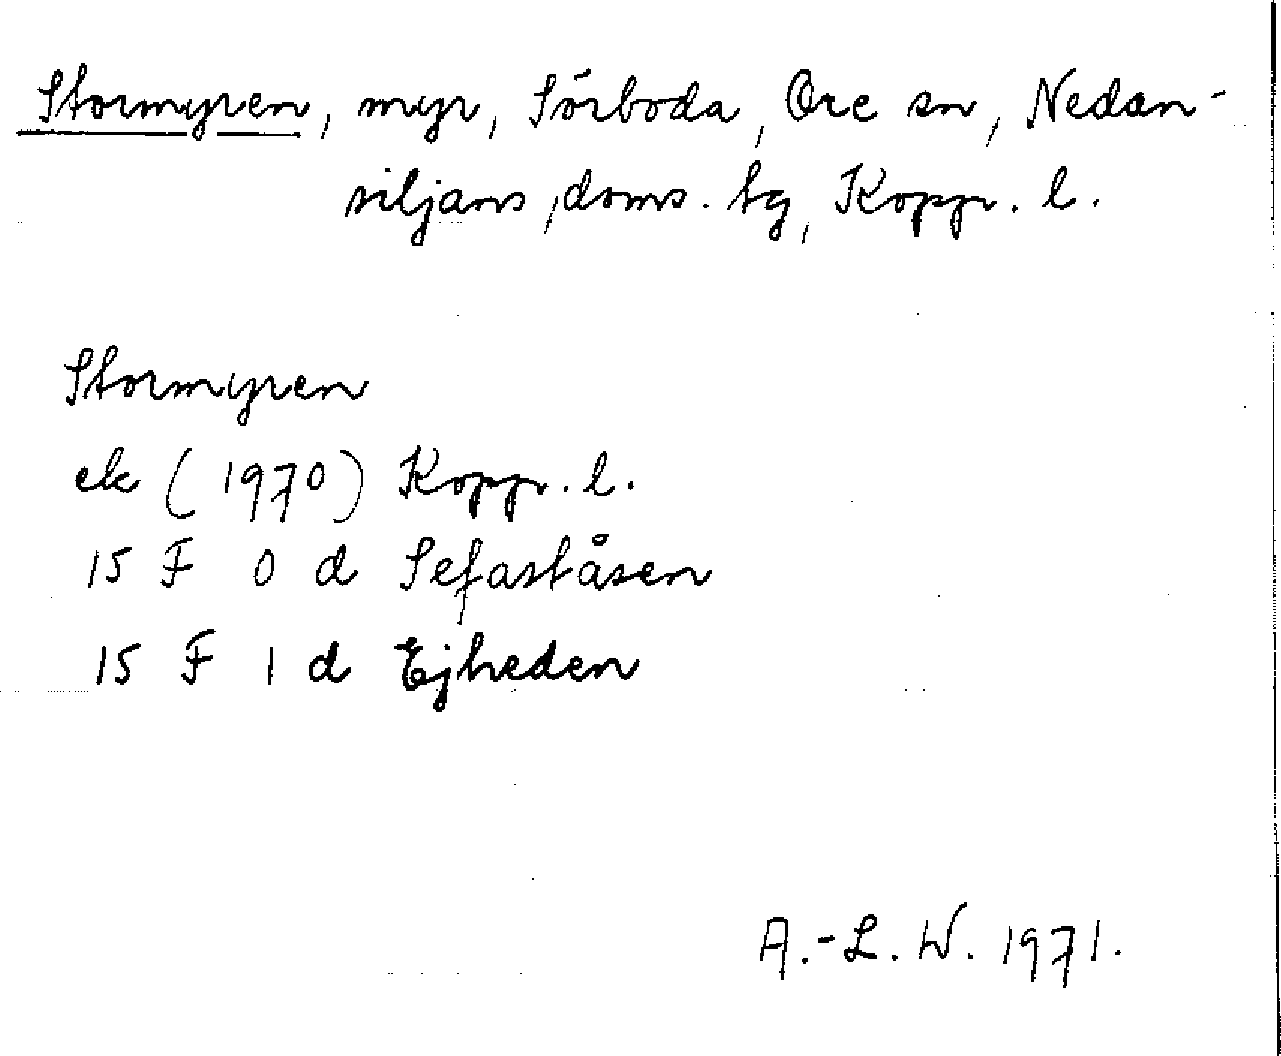 Stormyren, myr, Sörboda, Ore sn, Nedan-
siljans, doms. tg, Koppr. l.
Stormyren
ek (1970) Koppr. l.
15 F 0 d Sefaståsen
15 F 1 d Ejheden
A.-L. W. 1971.